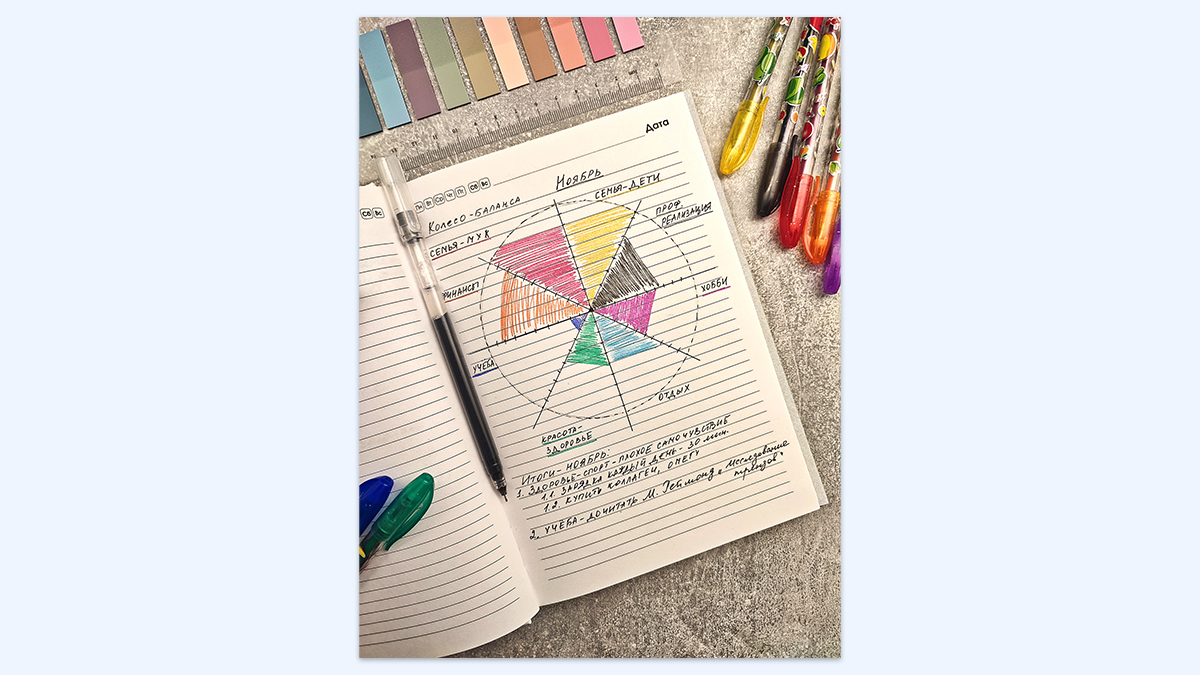 Дата
Пн Вт Ср Чт Пт Сб Вс
Сб Вс
Ноябрь
Колесо-баланса
Семья-дети
Семья-муж
Проф.
реализация
Финансы
Хобби
Учёба
Отдых
Красота-
здоровье
Итоги-ноябрь:
1. Здоровье-спорт-плохое самочувствие
1.1. Зарядка каждый день-30 мин.
1.2. Купить коллаген, омегу
2. Учёба-дочитать М. Геймонд "Исследование
периодов"